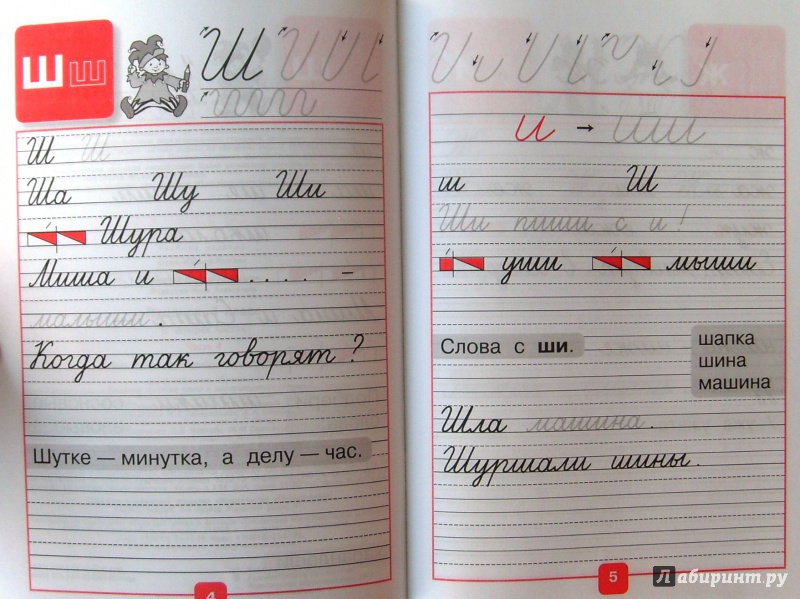 Ш ш
Ш
Ш Ш
Ша Шу Ши
Шура
Миша и . . . . –
малыши .
Когда так говорят ?
Шутке — минутка, а делу — час.
4
и → ши
ш Ш
Ши пиши с и !
уши мыши
Слова с ши.
шапка
шина
машина
Шла машина .
Шуршали шины .
5
Лабиринт.ру